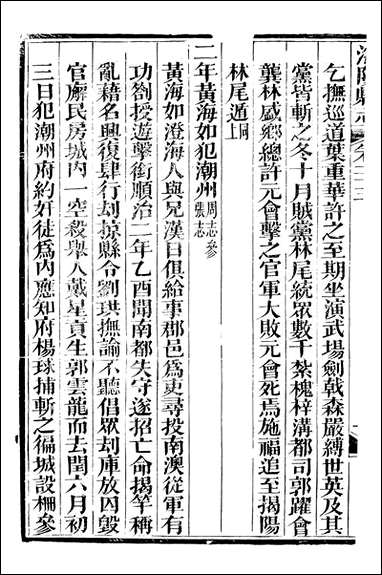 乞撫巡道葉重華許之至期坐演武場劍戟森嚴縛世英及其
黨皆斬之冬十月賊黨林尾統眾數千紮槐梓溝都司郭躍會
龔林感鄉總許元會擊之官軍大敗元會死焉施福追至揭陽
林尾遁同上
二年黃海如犯潮州周志參張志
黃海如澄海人與兄漢日俱給事郡邑為吏尋投南澳從軍有
功劄授遊擊銜順治二年乙酉聞南都失守遂招亡命揭竿稱
亂藉名興復肆行刼掠縣令劉珙撫諭不聽倡眾刼庫放囚毀
官廨民房城內一空殺舉人戴星貢生郭雲龍而去閏六月初
三日犯潮州府約奸徒為內應知府楊球捕斬之徧城設柵參